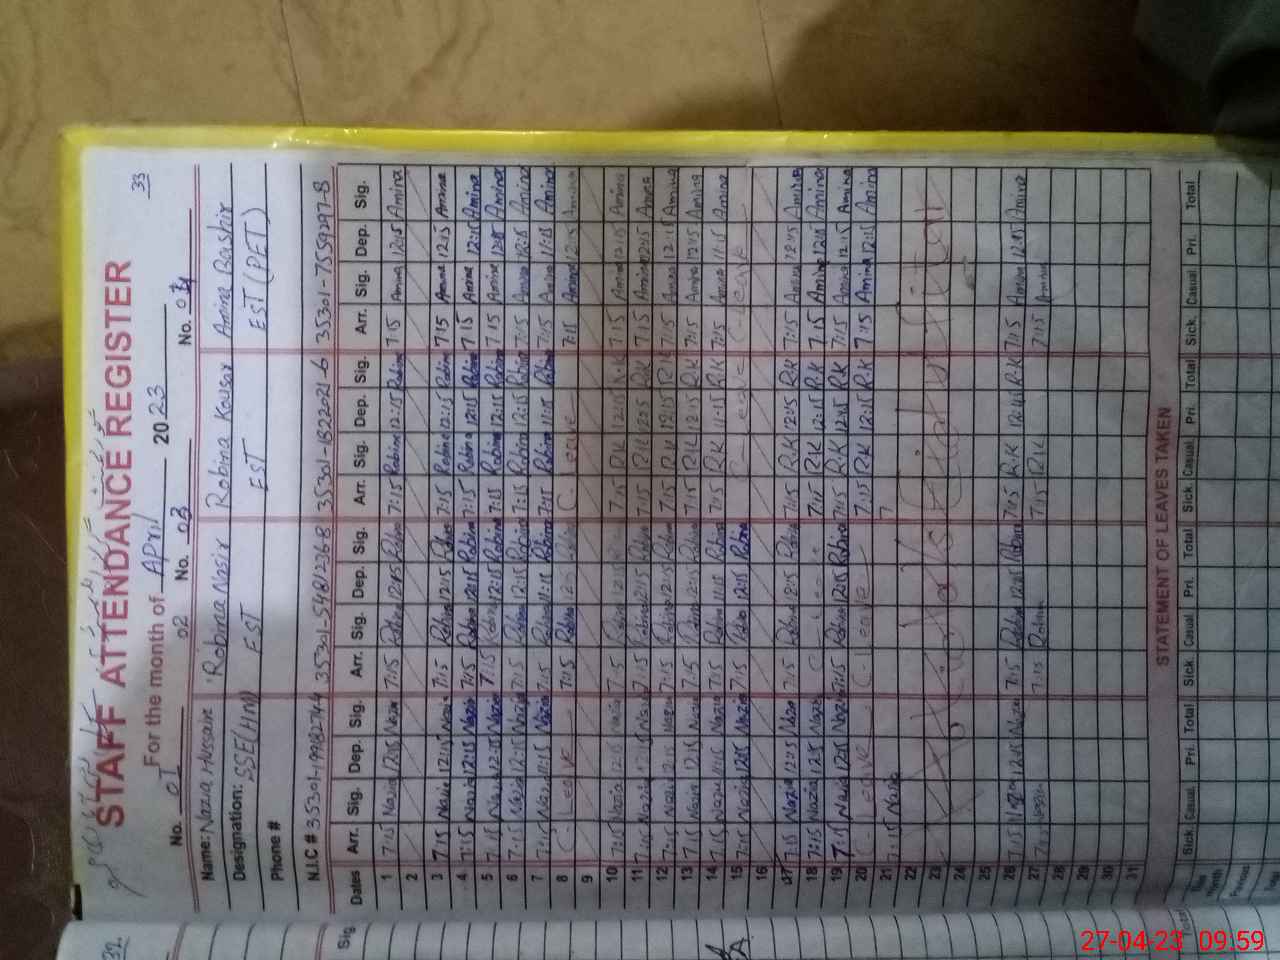 33
STAFF ATTENDANCE REGISTER
For the month of April 2023
No. 01 No. 02 No. 03 No. 04
Name: Nazia Hussain Robina Nasir Robina Kousar Amina Bashir
Designation: SSE(HM) EST EST EST (PET)
Phone #
N.I.C # 35301-5481226-8 35301-1822221-6 35301-7559297-8
Dates Arr. Sig. Dep. Sig. Arr. Sig. Dep. Sig. Arr. Sig. Dep. Sig. Arr. Sig. Dep. Sig.
1 7:15 Nazia 12:15 Nazia 7:15 Robina 12:15 Robina 7:15 Robina 12:15 Robina 7:15 Amina 12:15 Amina
2
3 7:15 Nazia 12:15 Nazia 7:15 Robina 12:15 Robina 7:15 Robina 12:15 Robina 7:15 Amina 12:15 Amina
4 7:15 Nazia 12:15 Nazia 7:15 Robina 12:15 Robina 7:15 Robina 12:15 Robina 7:15 Amina 12:15 Amina
5 7:15 Nazia 12:15 Nazia 7:15 Robina 12:15 Robina 7:15 Robina 12:15 Robina 7:15 Amina 12:15 Amina
6 7:15 Nazia 12:15 Nazia 7:15 Robina 12:15 Robina 7:15 Robina 12:15 Robina 7:15 Amina 12:15 Amina
7 7:15 Nazia 11:15 Nazia 7:15 Robina 11:15 Robina 7:15 Robina 11:15 Robina 7:15 Amina 11:15 Amina
8 C. Leave 7:15 Robina Robina C. Leave 7:15 Amina 12:15 Amina
9
10 7:15 Nazia 12:15 Nazia 7:15 Robina 12:15 Robina 7:15 R.K 12:15 R.K 7:15 Amina 12:15 Amina
11 7:15 Nazia 12:15 Nazia 7:15 Robina 12:15 Robina 7:15 R.K 12:15 R.K 7:15 Amina 12:15 Amina
12 7:15 Nazia 12:15 Nazia 7:15 Robina 12:15 Robina 7:15 R.K 12:15 R.K 7:15 Amina 12:15 Amina
13 7:15 Nazia 12:15 Nazia 7:15 Robina 12:15 Robina 7:15 R.K 12:15 R.K 7:15 Amina 12:15 Amina
14 7:15 Nazia 11:15 Nazia 7:15 Robina 11:15 Robina 7:15 R.K 11:15 R.K 7:15 Amina 11:15 Amina
15 7:15 Nazia 12:15 Nazia 7:15 Robina 12:15 Robina C-Leave C-Leave
16
17 7:15 Nazia 12:15 Nazia 7:15 Robina 12:15 Robina 7:15 R.K 12:15 R.K 7:15 Amina 12:15 Amina
18 7:15 Nazia 12:15 Nazia 7:15 R.K 12:15 R.K 7:15 Amina 12:15 Amina
19 7:15 Nazia 12:15 Nazia 7:15 Robina 12:15 Robina 7:15 R.K 12:15 R.K 7:15 Amina 12:15 Amina
20 C. Leave C Leave 7:15 R.K 12:15 R.K 7:15 Amina 12:15 Amina
21 7:15 Nazia 7
22
23
24
25
26 7:15 12:15 Nazia 7:15 Robina 12:15 Robina 7:15 R.K R.K 7:15 Amina 12:15 Amina
27 7:15 7:15 Robina 7:15 R.K 7:15 Amina
28
29
30
31
STATEMENT OF LEAVES TAKEN
Sick Casual Pri. Total Sick Casual Pri. Total Sick Casual Pri. Total Sick. Casual Pri. Total
This month
Period
Total
32
Sig.
Total
27-04-23 09:59